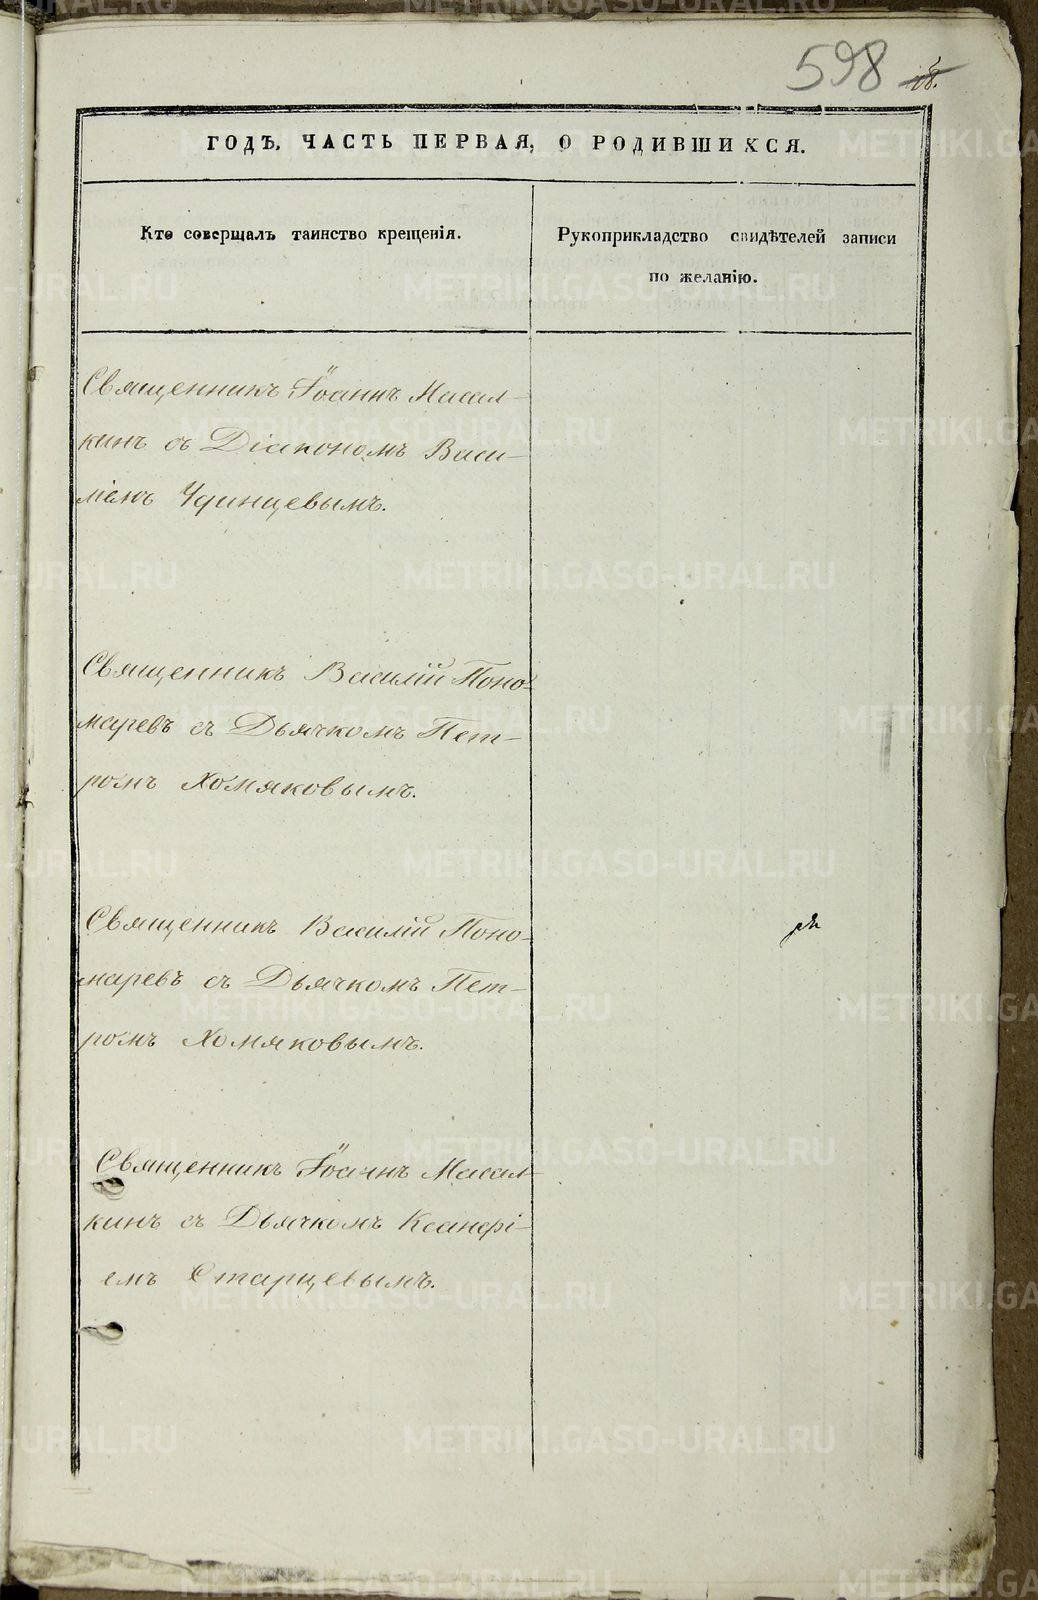 598
18.
ГОДѢ, ЧАСТЬ ПЕРВАЯ, О РОДИВШИХСЯ.
Кто совершалъ таинство крещенія.
Рукоприкладство свидѣтелей записи
по желанію.
Священникъ Іоаннъ Масал-
кинъ съ Діакономъ Васи-
ліемъ Удинцевымъ.
Священникъ Василій Поно-
маревъ съ Дьячкомъ Пет-
ромъ Хомяковымъ.
Священникъ Василій Поно-
маревъ съ Дьячкомъ Пет-
ромъ Хомяковымъ.
Священникъ Іоаннъ Масал-
кинъ съ Дьячкомъ Ксанфі-
емъ Старцевымъ.
METRIKI.GASO-URAL.RU